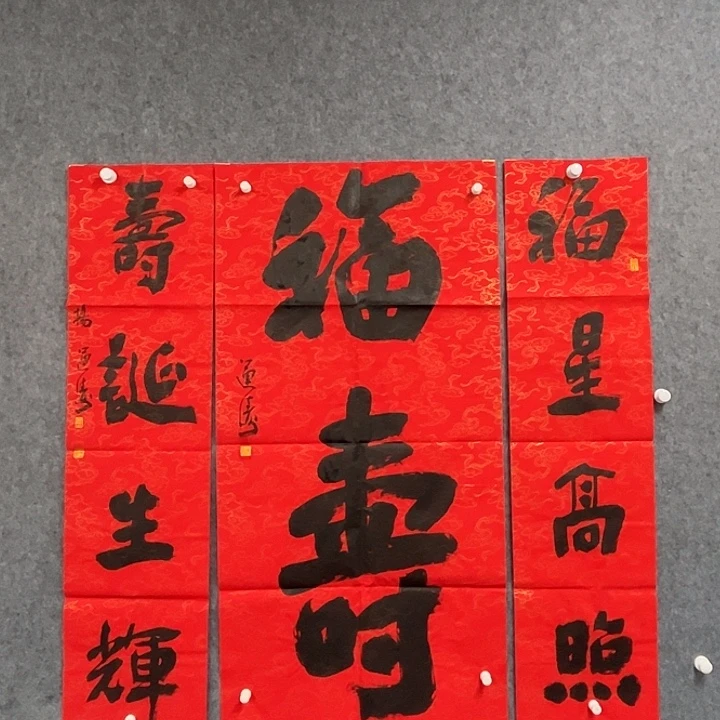 福星高照
福壽
壽誕生輝